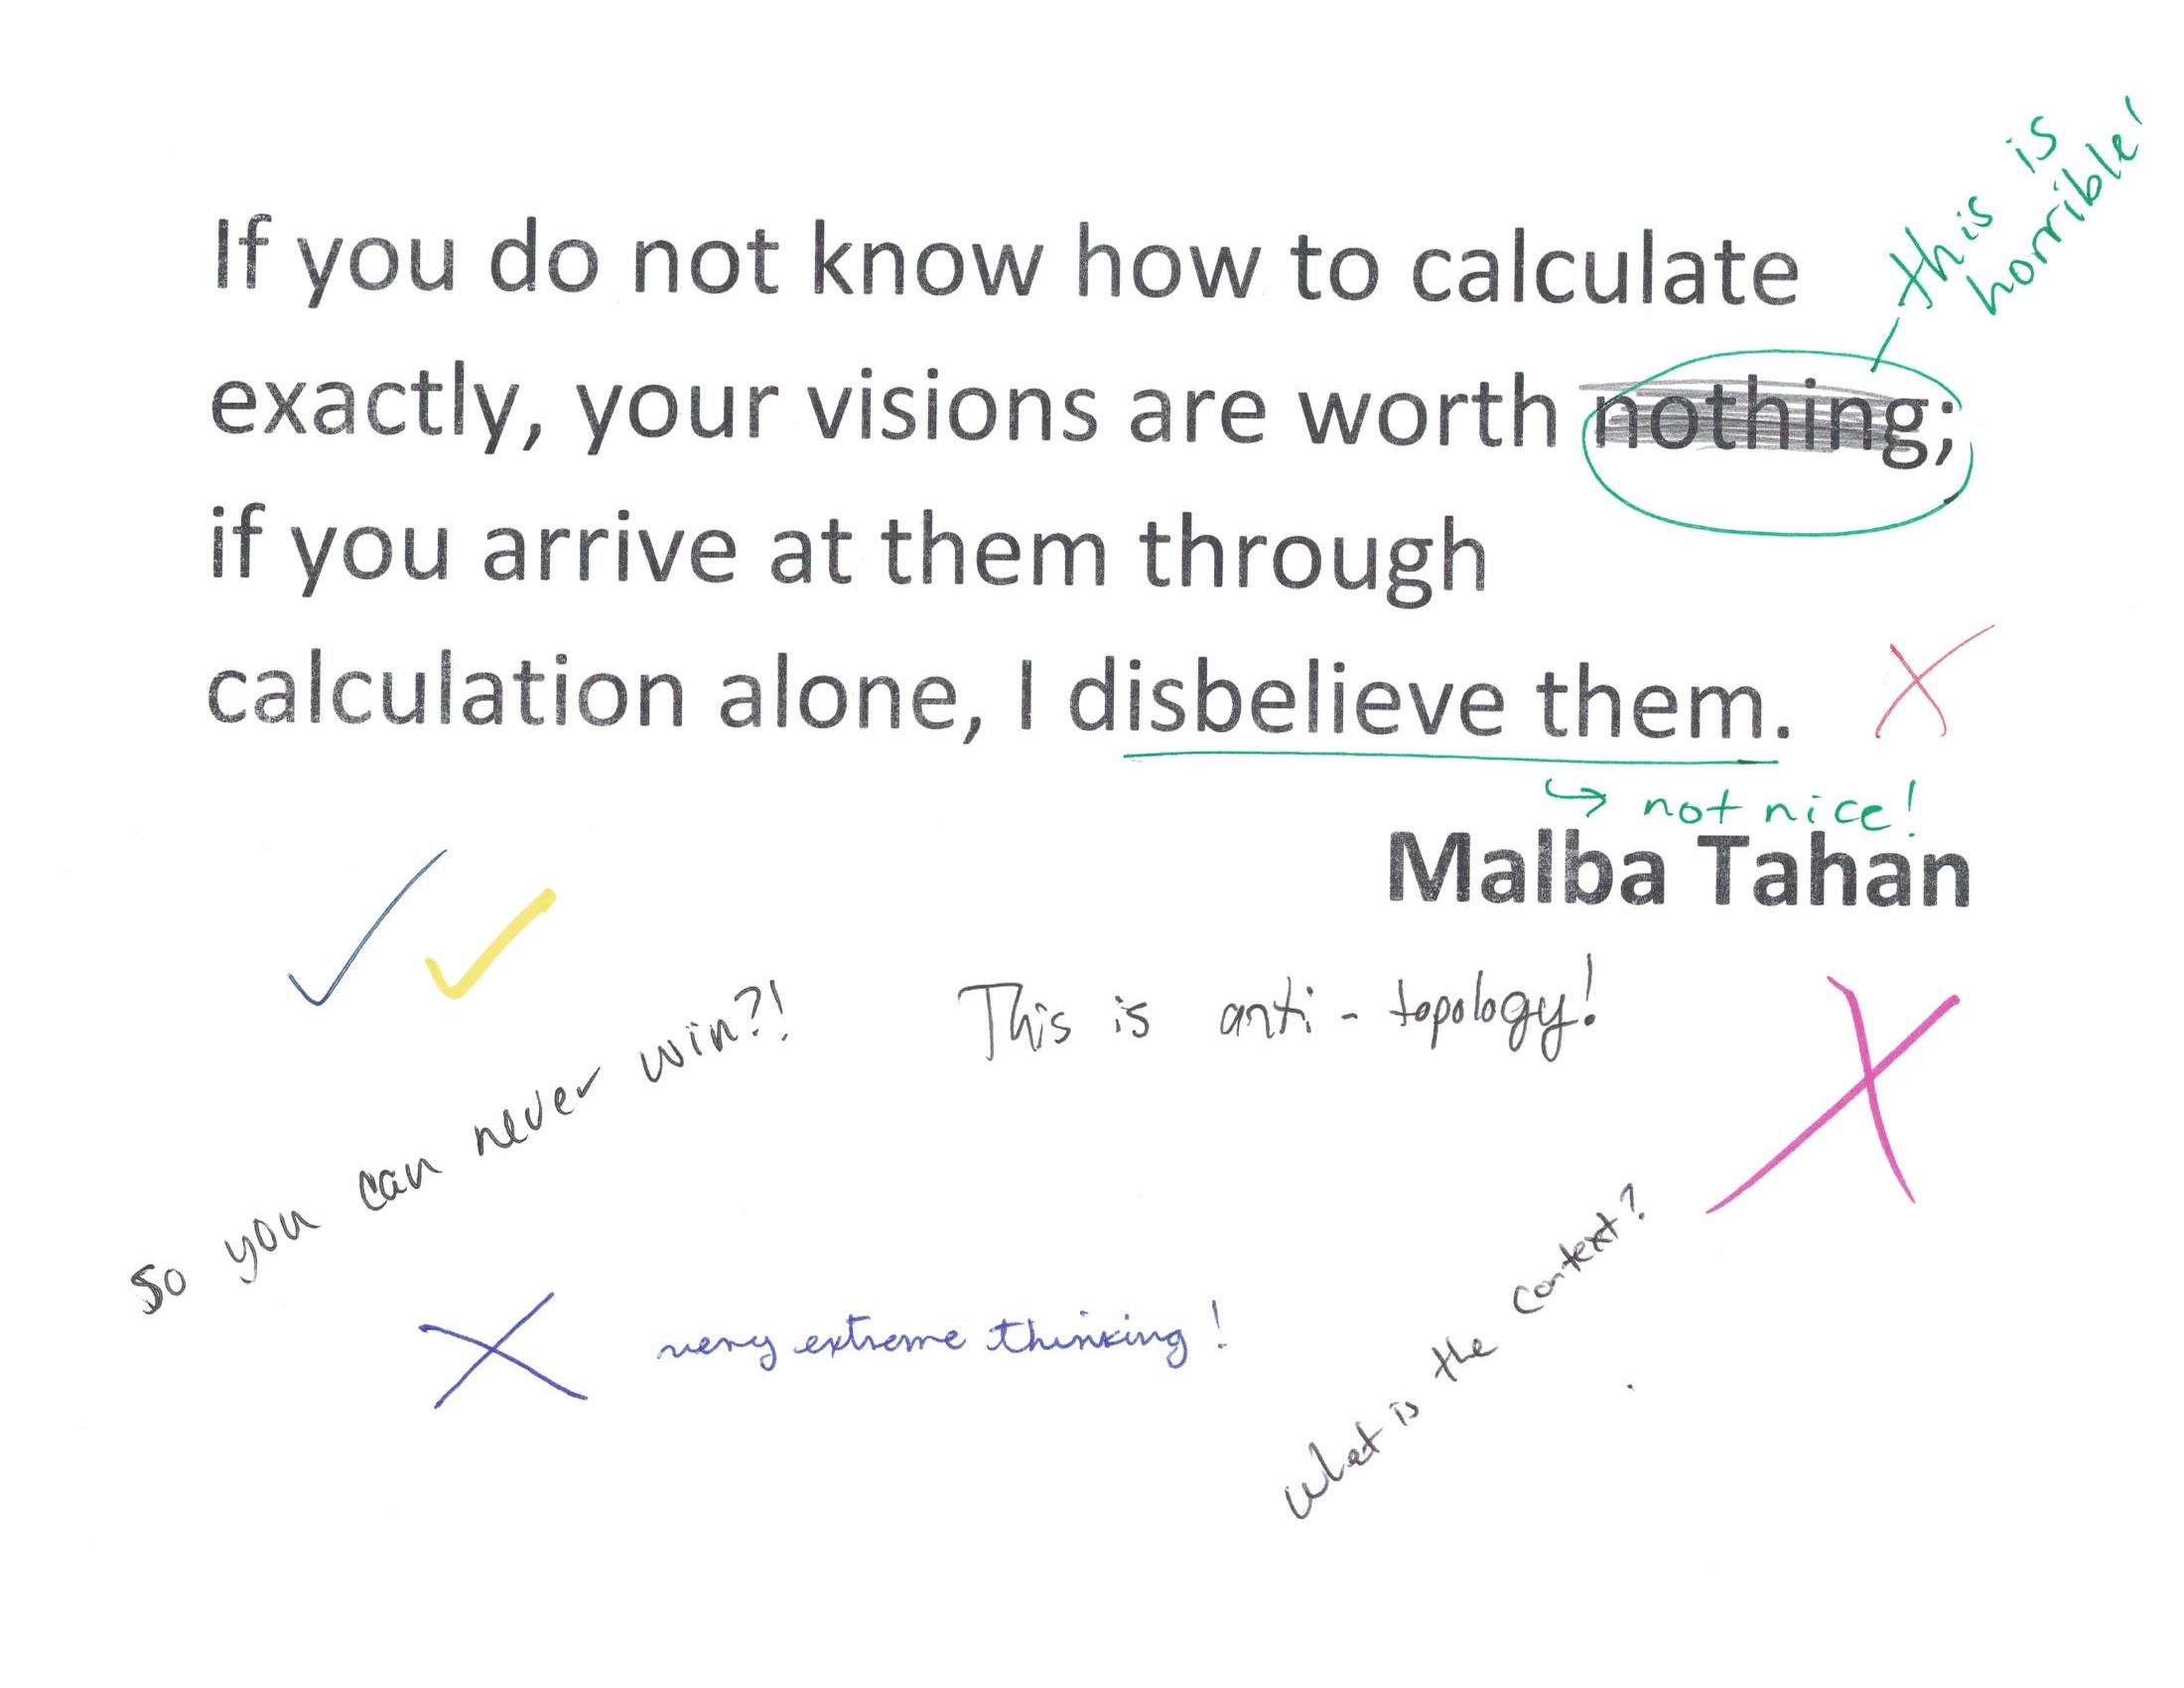 this is
horrible!
If you do not know how to calculate
exactly, your visions are worth nothing;
if you arrive at them through
calculation alone, I disbelieve them.
not nice!
Malba Tahan
This is anti-topology!
So you can never win?!
very extreme thinking!
What is the context?